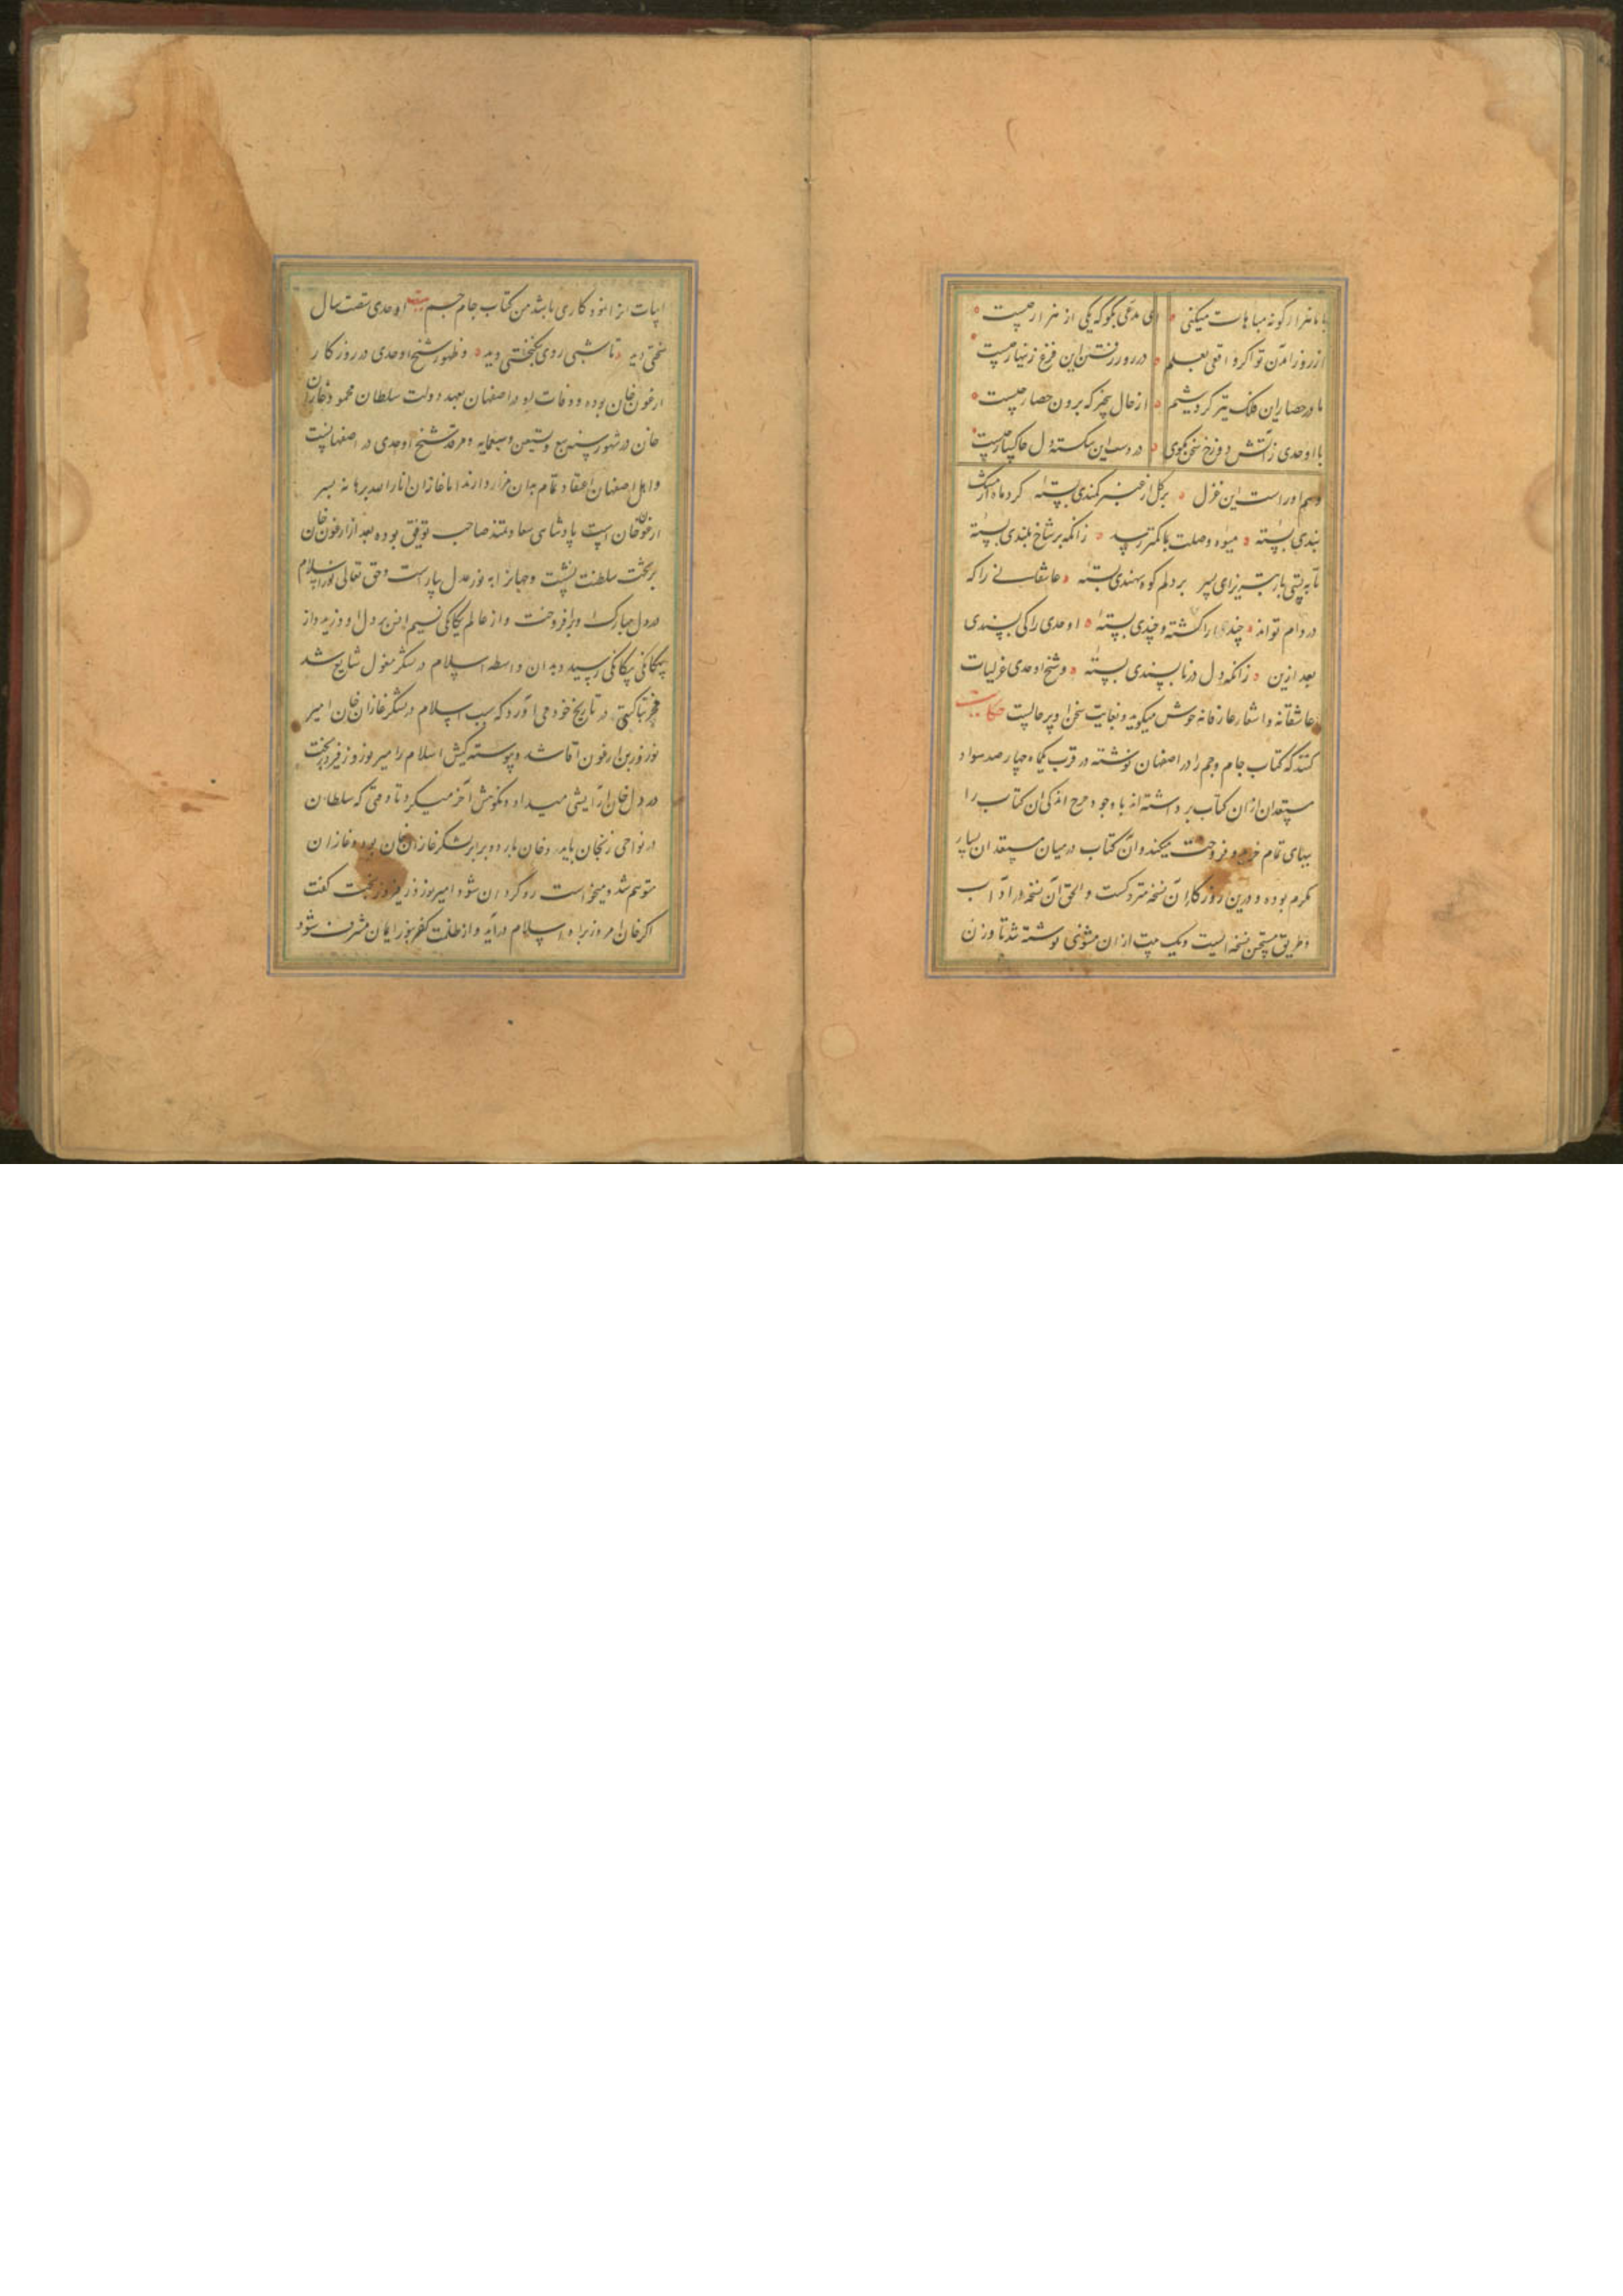 با ما هزار گونه مباهات میکنی ای مدعی بگو که یکی از هزار چیست
از روز آمدن تو اگر واقفی بعلم در روز رفتن این فزع زینهار چیست
ما در حصار این فلک تیز گردشیم از حال بیخبر که برون حصار چیست
با اوحدی ز آتش دوزخ سخن مگوی در دست این شکسته دل خاکسار چیست
و هم اوراست این غزل بر گل از عنبر کمندی بستهٔ گرد ماه از مشک
بندی بستهٔ میوهٔ وصلت بما کمتر رسد زانکه بر شاخ بلندی بستهٔ
تا به پشتی بار تبریز ای پسر بر دلم کوه سهندی بستهٔ عاشقانی را که
در دام تواند چند را کشته و چندی بستهٔ اوحدی را کی پسندی
بعد ازین زانکه دل در ناپسندی بستهٔ و شیخ اوحدی غزلیات
عاشقانه و اشعار عارفانه خوش میگوید و بغایت سخن او پر حالیست حکایت
کنند که کتاب جام و جم را در اصفهان نوشته در قرب یکماه چهار صد سواد
مستعدان از ان کتاب برداشته اند با وجود حرج اندکی ان کتاب را
ببهای تمام خرید و فروخت میکنند و آن کتاب در میان مستعدان بسیار
مکرم بوده و درین روزگار ان نسخه متروکست و الحق آن نسخه در آداب
و طریق مستحسن نسخه ایست و یک بیت از ان مثنوی نوشته شد تا وزن
ابیات بر انمودکاری باشد من کتاب جام جم بیت اوحدی شصت سال
سختی دید تا شبی روی نیکبختی دید و ظهور شیخ اوحدی در روزگار
ارغون خان بوده و وفات او در اصفهان بعهد دولت سلطان محمود غازان
خان در شهور سنه سبع و تسعین و ستمایه و مرقد شیخ اوحدی در اصفهانست
و اهل اصفهان اعتقاد تمام بدان مزار دارند اما غازان انار الله برهانه پسر
ارغون خان است پادشاهی سعادتمند صاحب توفیق بوده بعد از ارغون خان
بر تخت سلطنت نشست و جهانرا به نور عدل بیاراست و حق تعالی نور اسلام
در دل مبارک او برافروخت و از عالم یگانگی نسیم این بر دل او وزید و از
بیگانگی بیگانگی رسید و بدان واسطه اسلام در لشکر مغول شایع شد
فخر بناکتی در تاریخ خود می آورد که سبب اسلام در لشکر غازان خان امیر
نوروز بن ارغون اقا شد و پیوسته کیش اسلام را امیر نوروز فیروزبخت
در دل خان آرایشی میداد و نکوهش آخر میکرد تا وقتی که سلطان
در نواحی زنجان باید و خان بارو برابر لشکر غازان خان بود و غازان
متوهم شد و میخواست روگردان شود امیر نوروز فیروزبخت گفت
اگر خان امروز براه اسلام درآید و از ظلمت کفر بنور ایمان مشرف شود